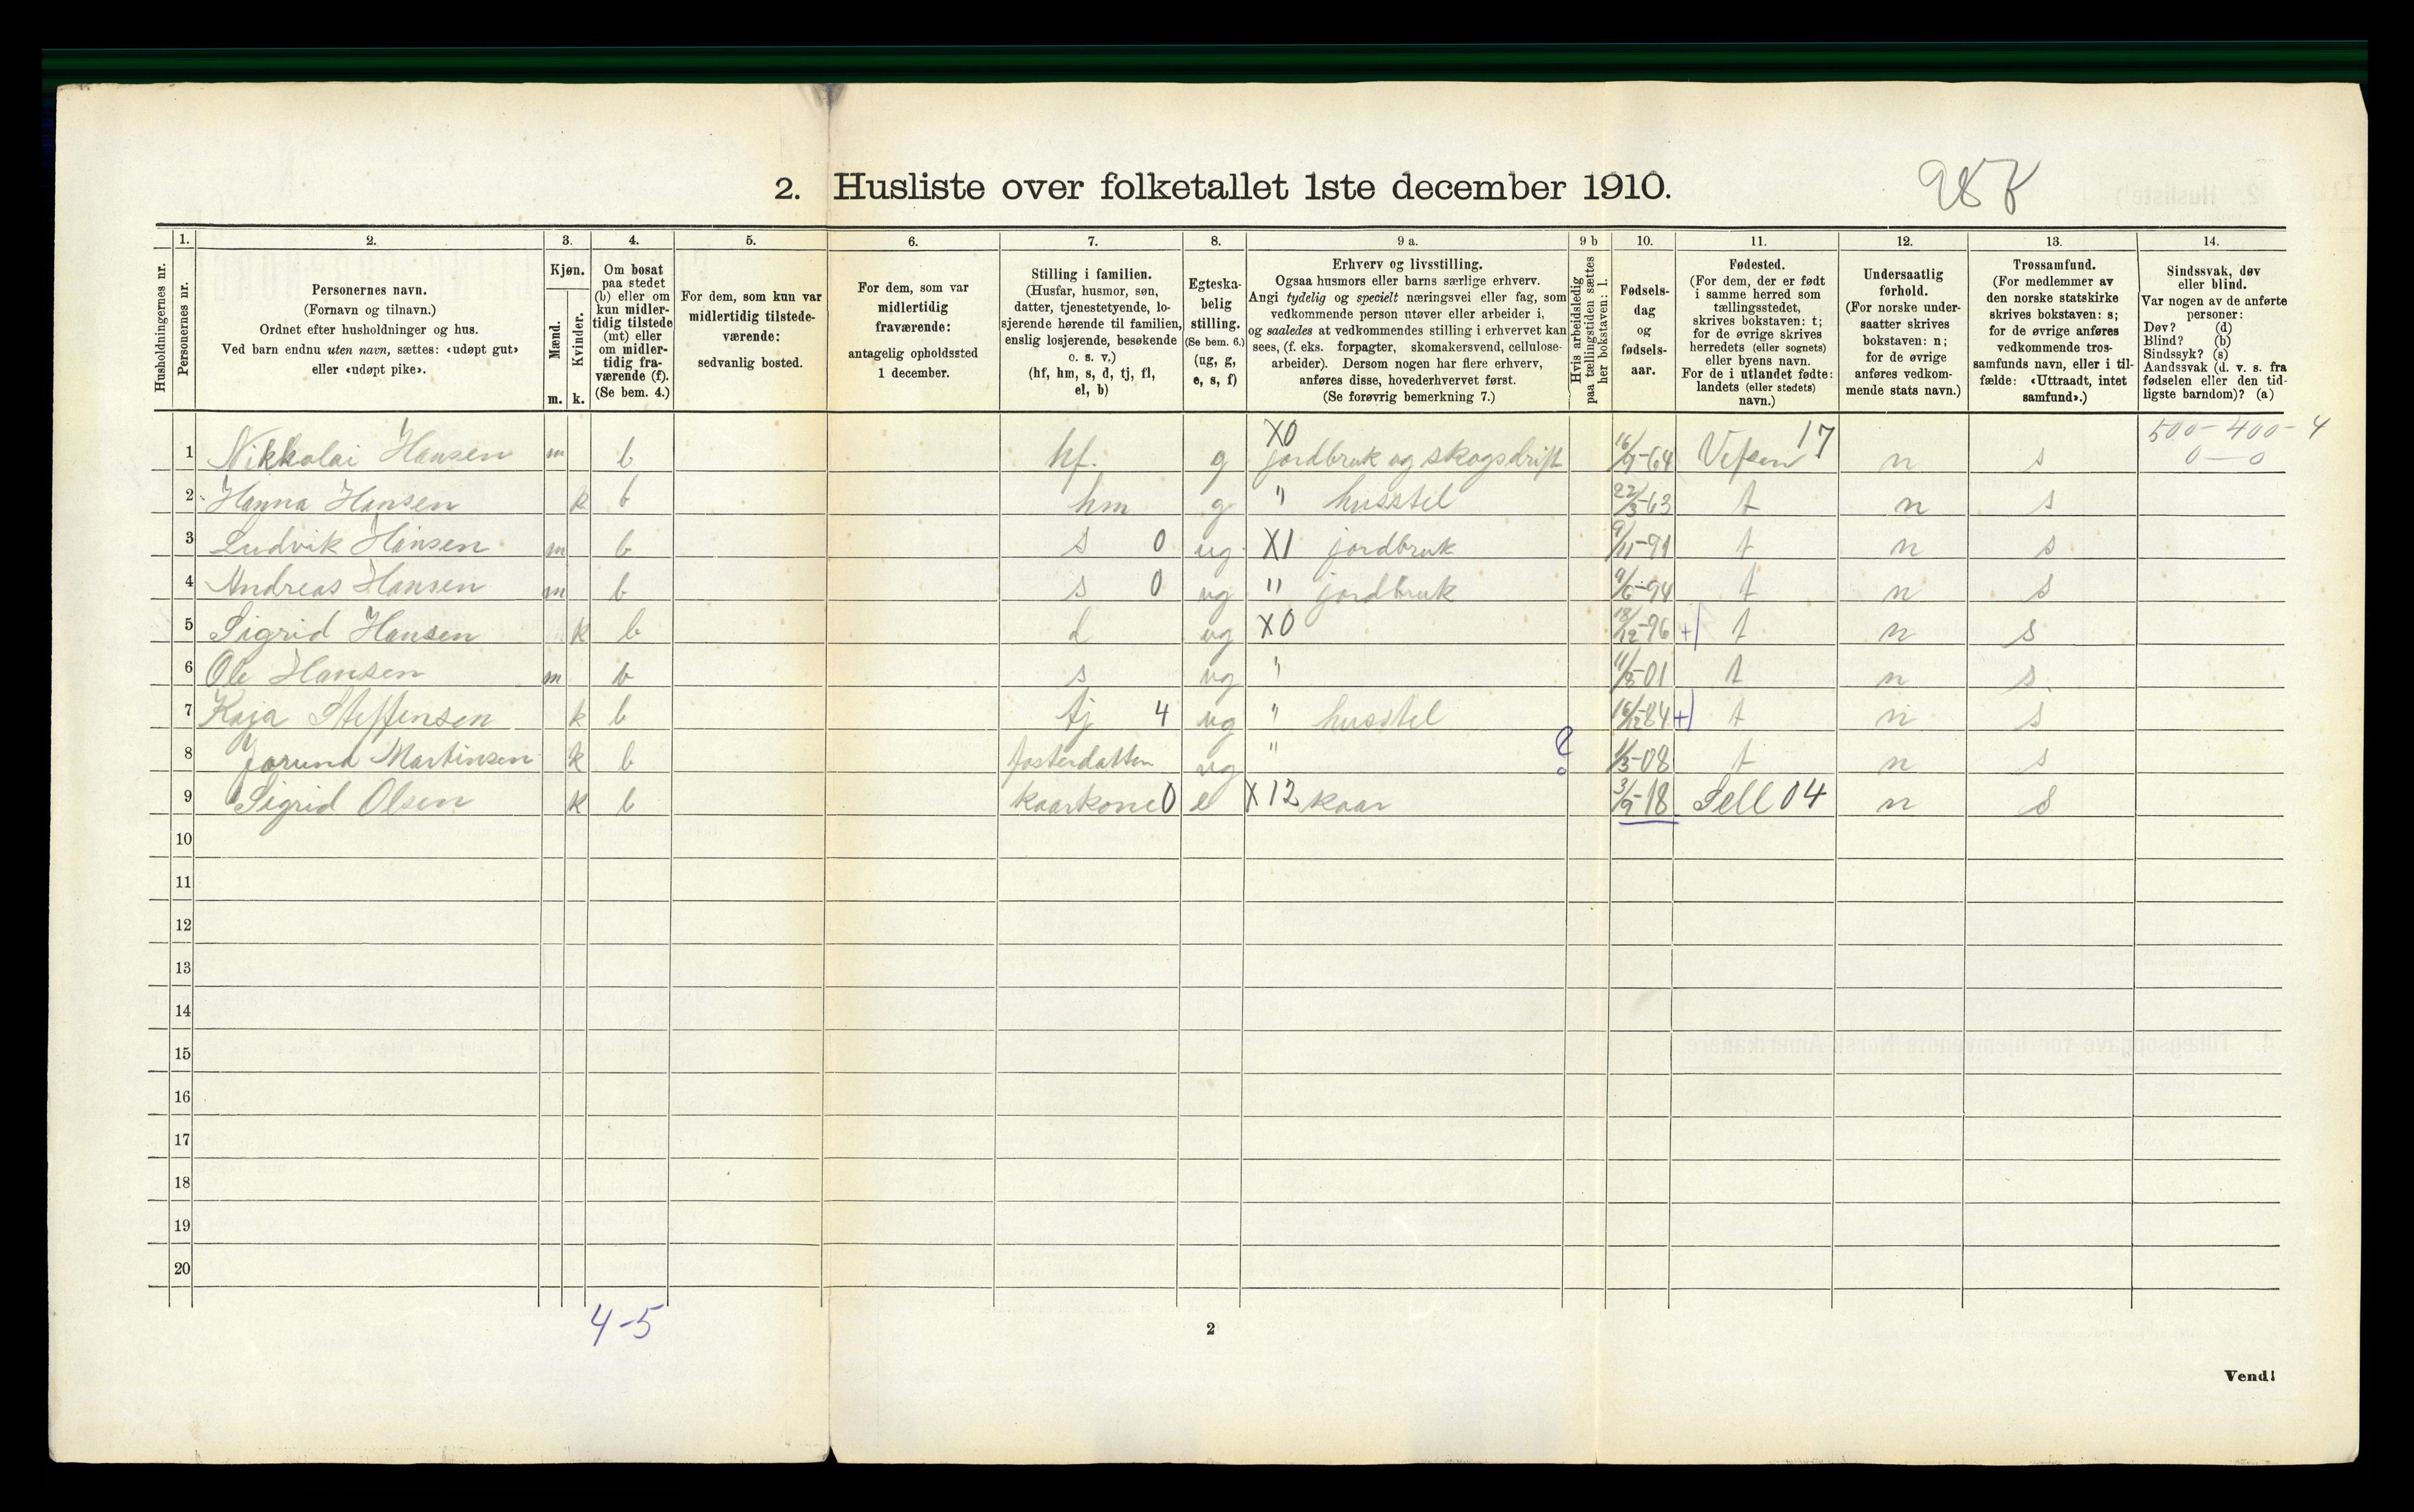 2. Husliste over folketallet 1ste december 1910.
1. 2. 3. 4. 5. 6. 7. 8. 9 a. 9 b 10. 11. 12. 13. 14.
Husholdningernes nr.
Personernes nr.
Personernes navn.
(Fornavn og tilnavn.)
Ordnet efter husholdninger og hus.
Ved barn endnu uten navn, sættes: «udøpt gut»
eller «udøpt pike».
Kjøn.
Mænd.
Kvinder.
m. k.
Om bosat
paa stedet
(b) eller om
kun midler-
tidig tilstede
(mt) eller
om midler-
tidig fra-
værende (f).
(Se bem. 4.)
For dem, som kun var
midlertidig tilstede-
værende:
sedvanlig bosted.
For dem, som var
midlertidig
fraværende:
antagelig opholdssted
1 december.
Stilling i familien.
(Husfar, husmor, søn,
datter, tjenestetyende, lo-
sjerende hørende til familien,
enslig losjerende, besøkende
o. s. v.)
(hf, hm, s, d, tj, fl,
el, b)
Egteska-
belig
stilling.
(Se bem. 6.)
(ug, g,
e, s, f)
Erhverv og livsstilling.
Ogsaa husmors eller barns særlige erhverv.
Angi tydelig og specielt næringsvei eller fag, som
vedkommende person utøver eller arbeider i,
og saaledes at vedkommendes stilling i erhvervet kan
sees, (f. eks. forpagter, skomakersvend, cellulose-
arbeider). Dersom nogen har flere erhverv,
anføres disse, hovederhvervet først.
(Se forøvrig bemerkning 7.)
Hvis arbeidsledig
paa tællingstiden sættes
her bokstaven: l.
Fødsels-
dag
og
fødsels-
aar.
Fødested.
(For dem, der er født
i samme herred som
tællingsstedet,
skrives bokstaven: t;
for de øvrige skrives
herredets (eller sognets)
eller byens navn.
For de i utlandet fødte:
landets (eller stedets)
navn.)
Undersaatlig
forhold.
(For norske under-
saatter skrives
bokstaven: n;
for de øvrige
anføres vedkom-
mende stats navn.)
Trossamfund.
(For medlemmer av
den norske statskirke
skrives bokstaven: s;
for de øvrige anføres
vedkommende tros-
samfunds navn, eller i til-
fælde: «Uttraadt, intet
samfund».)
Sindssvak, døv
eller blind.
Var nogen av de anførte
personer:
Døv? (d)
Blind? (b)
Sindssyk? (s)
Aandssvak (d. v. s. fra
fødselen eller den tid-
ligste barndom)? (a)
X0 17 500-400-4
1 Nikkolai Hansen m b hf. g jordbruk og skogsdrift 16/9-64 Vefsen n s 0—0
2 Hanna Hansen k b hm g " husstel 22/3-63 t n s
3 Ludvik Hansen m b s 0 ug X1 jordbruk 9/11-91 t n s
4 Andreas Hansen m b s 0 ug " jordbruk 9/6-94 t n s
5 Sigrid Hansen k b d ug X0 18/12-96 + t n s
6 Ole Hansen m b s ug " 11/8-01 t n s.
7 Kaja Steffensen k b tj 4 ug " husstel 16/12-84 + t n s
8 Jorund Martinsen k b fosterdatter ug " ? 1/5-08 t n s
9 Sigrid Olsen k b kaarkone 0 e X12 kaar 3/9-18 Sell 04 n s
10
11
12
13
14
15
16
17
18
19
20
4-5
2
Vend!